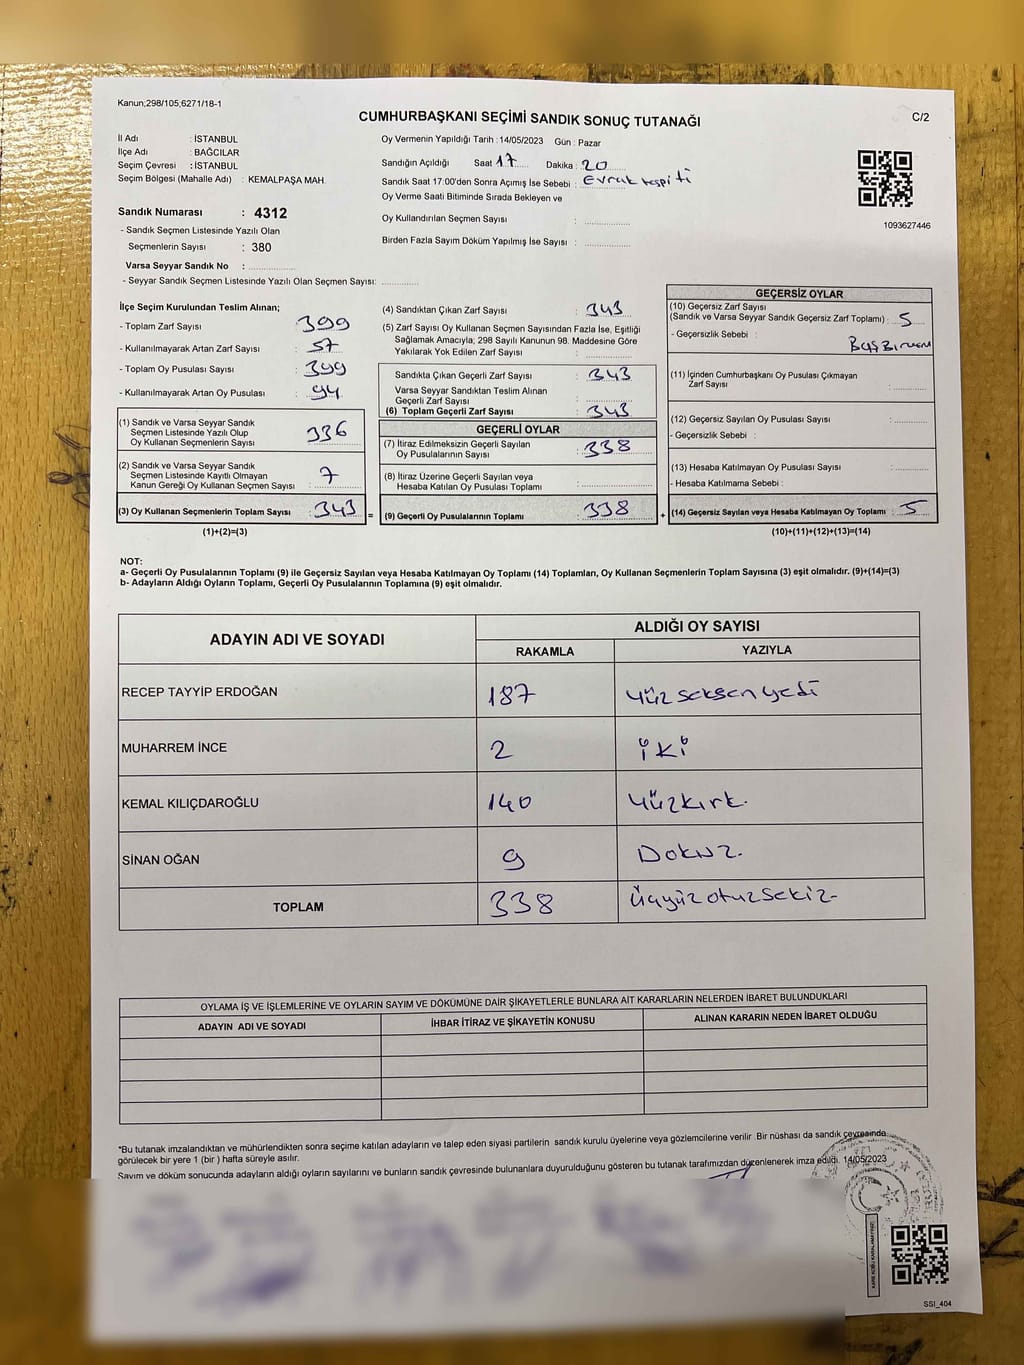 Kanun;298/105;6271/18-1
C/2
CUMHURBAŞKANI SEÇİMİ SANDIK SONUÇ TUTANAĞI
İl Adı : İSTANBUL
İlçe Adı : BAĞCILAR
Seçim Çevresi : İSTANBUL
Seçim Bölgesi (Mahalle Adı) : KEMALPAŞA MAH.
Oy Vermenin Yapıldığı Tarih : 14/05/2023 Gün : Pazar
Sandığın Açıldığı Saat 17 Dakika : 20
Sandık Saat 17:00'den Sonra Açılmış İse Sebebi : Evrak tespiti
Oy Verme Saati Bitiminde Sırada Bekleyen ve
Oy Kullandırılan Seçmen Sayısı :
Birden Fazla Sayım Döküm Yapılmış İse Sayısı :
1093627446
Sandık Numarası : 4312
- Sandık Seçmen Listesinde Yazılı Olan
Seçmenlerin Sayısı : 380
Varsa Seyyar Sandık No :
- Seyyar Sandık Seçmen Listesinde Yazılı Olan Seçmen Sayısı:
İlçe Seçim Kurulundan Teslim Alınan;
- Toplam Zarf Sayısı : 399
- Kullanılmayarak Artan Zarf Sayısı : 57
- Toplam Oy Pusulası Sayısı : 399
- Kullanılmayarak Artan Oy Pusulası : 94
(1) Sandık ve Varsa Seyyar Sandık
Seçmen Listesinde Yazılı Olup
Oy Kullanan Seçmenlerin Sayısı : 336
(2) Sandık ve Varsa Seyyar Sandık
Seçmen Listesinde Kayıtlı Olmayan
Kanun Gereği Oy Kullanan Seçmen Sayısı : 7
(3) Oy Kullanan Seçmenlerin Toplam Sayısı : 343 =
(1)+(2)=(3)
(4) Sandıktan Çıkan Zarf Sayısı : 343
(5) Zarf Sayısı Oy Kullanan Seçmen Sayısından Fazla İse, Eşitliği
Sağlamak Amacıyla; 298 Sayılı Kanunun 98. Maddesine Göre
Yakılarak Yok Edilen Zarf Sayısı :
Sandıkta Çıkan Geçerli Zarf Sayısı : 343
Varsa Seyyar Sandıktan Teslim Alınan
Geçerli Zarf Sayısı :
(6) Toplam Geçerli Zarf Sayısı : 343
GEÇERLİ OYLAR
(7) İtiraz Edilmeksizin Geçerli Sayılan
Oy Pusulalarının Sayısı : 338
(8) İtiraz Üzerine Geçerli Sayılan veya
Hesaba Katılan Oy Pusulası Toplamı :
(9) Geçerli Oy Pusulalarının Toplamı : 338 +
GEÇERSİZ OYLAR
(10) Geçersiz Zarf Sayısı
(Sandık ve Varsa Seyyar Sandık Geçersiz Zarf Toplamı) : 5
- Geçersizlik Sebebi :
(11) İçinden Cumhurbaşkanı Oy Pusulası Çıkmayan
Zarf Sayısı :
(12) Geçersiz Sayılan Oy Pusulası Sayısı :
- Geçersizlik Sebebi :
(13) Hesaba Katılmayan Oy Pusulası Sayısı :
- Hesaba Katılmama Sebebi :
(14) Geçersiz Sayılan veya Hesaba Katılmayan Oy Toplamı : 5
(10)+(11)+(12)+(13)=(14)
NOT:
a- Geçerli Oy Pusulalarının Toplamı (9) ile Geçersiz Sayılan veya Hesaba Katılmayan Oy Toplamı (14) Toplamları, Oy Kullanan Seçmenlerin Toplam Sayısına (3) eşit olmalıdır. (9)+(14)=(3)
b- Adayların Aldığı Oyların Toplamı, Geçerli Oy Pusulalarının Toplamına (9) eşit olmalıdır.
ADAYIN ADI VE SOYADI
ALDIĞI OY SAYISI
RAKAMLA YAZIYLA
RECEP TAYYİP ERDOĞAN 187 Yüz seksen yedi
MUHARREM İNCE 2 İKİ
KEMAL KILIÇDAROĞLU 140 Yüzkırk.
SİNAN OĞAN 9 Dokuz.
TOPLAM 338 Üçyüzotuzsekiz-
OYLAMA İŞ VE İŞLEMLERİNE VE OYLARIN SAYIM VE DÖKÜMÜNE DAİR ŞİKAYETLERLE BUNLARA AİT KARARLARIN NELERDEN İBARET BULUNDUKLARI
ADAYIN ADI VE SOYADI
İHBAR İTİRAZ VE ŞİKAYETİN KONUSU
ALINAN KARARIN NEDEN İBARET OLDUĞU
*Bu tutanak imzalandıktan ve mühürlendikten sonra seçime katılan adayların ve talep eden siyasi partilerin sandık kurulu üyelerine veya gözlemcilerine verilir. Bir nüshası da sandık çevresinde
görülecek bir yere 1 (bir) hafta süreyle asılır.
Sayım ve döküm sonucunda adayların aldığı oyların sayılarını ve bunların sandık çevresinde bulunanlara duyurulduğunu gösteren bu tutanak tarafımızdan düzenlenerek imza edildi. 14/05/2023
SSI_404